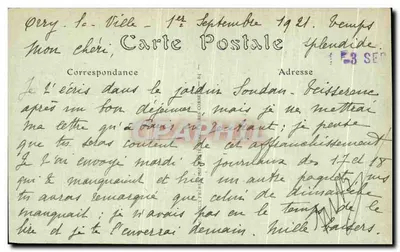 Orry-la-Ville - 1er Septembre 1921. Temps
Mon chéri. Carte Postale splendide.
3 SEP
Correspondance Adresse
Je t'écris dans le jardin
après un bon déjeuner mais je ne mettrai
ma lettre qu'à en ; je pense
que tu seras content de cet affranchissement
Je t'ai envoyé mardi les journaux des 17 et 18
qui manquaient et hier un autre paquet, mais
tu auras remarqué que celui de dimanche
manquait ; je n'avais pas eu le temps de le
lire et je te l'enverrai demain. Mille baisers.
CARTE-POSTALE